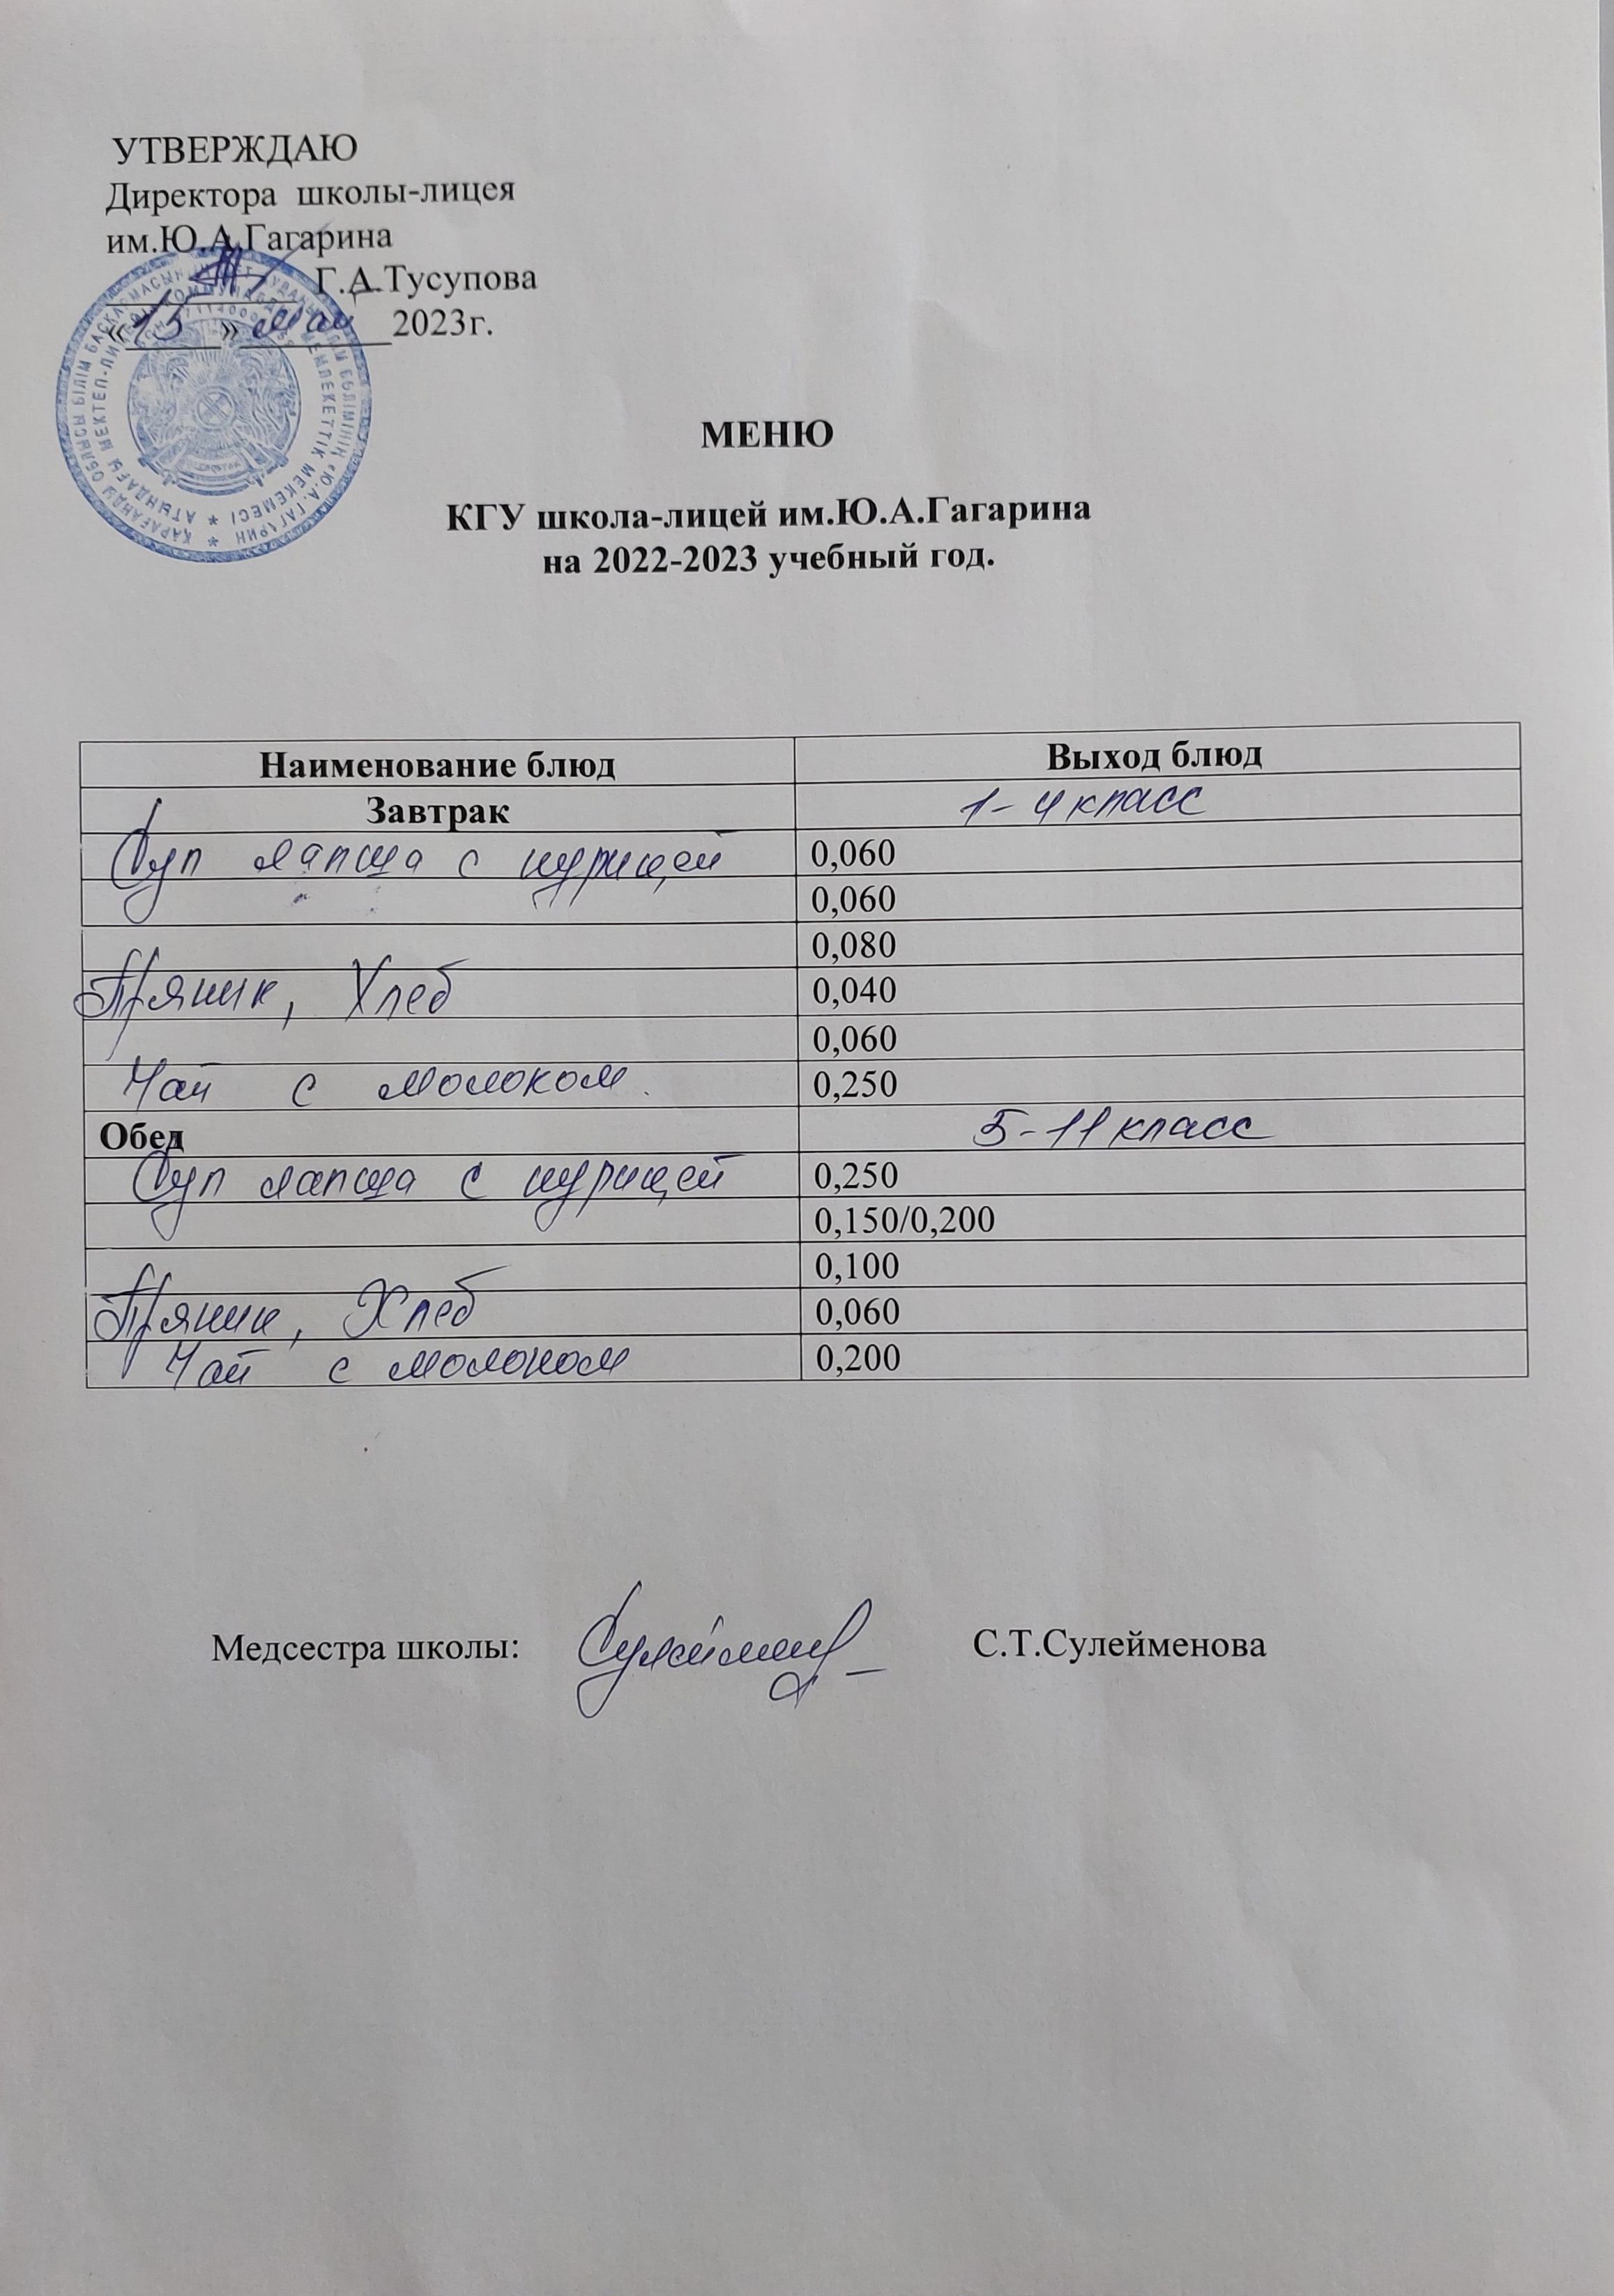 УТВЕРЖДАЮ
Директора школы-лицея
им.Ю.А.Гагарина
Г.А.Тусупова
«15» май 2023г.
МЕНЮ
КГУ школа-лицей им.Ю.А.Гагарина
на 2022-2023 учебный год.
Наименование блюд Выход блюд
Завтрак 1-4 класс
Суп лапша с курицей 0,060
0,060
0,080
Пряник, Хлеб 0,040
0,060
Чай с молоком. 0,250
Обед 5-11 класс
Суп лапша с курицей 0,250
0,150/0,200
0,100
Пряник, Хлеб 0,060
Чай с молоком 0,200
Медсестра школы: С.Т.Сулейменова